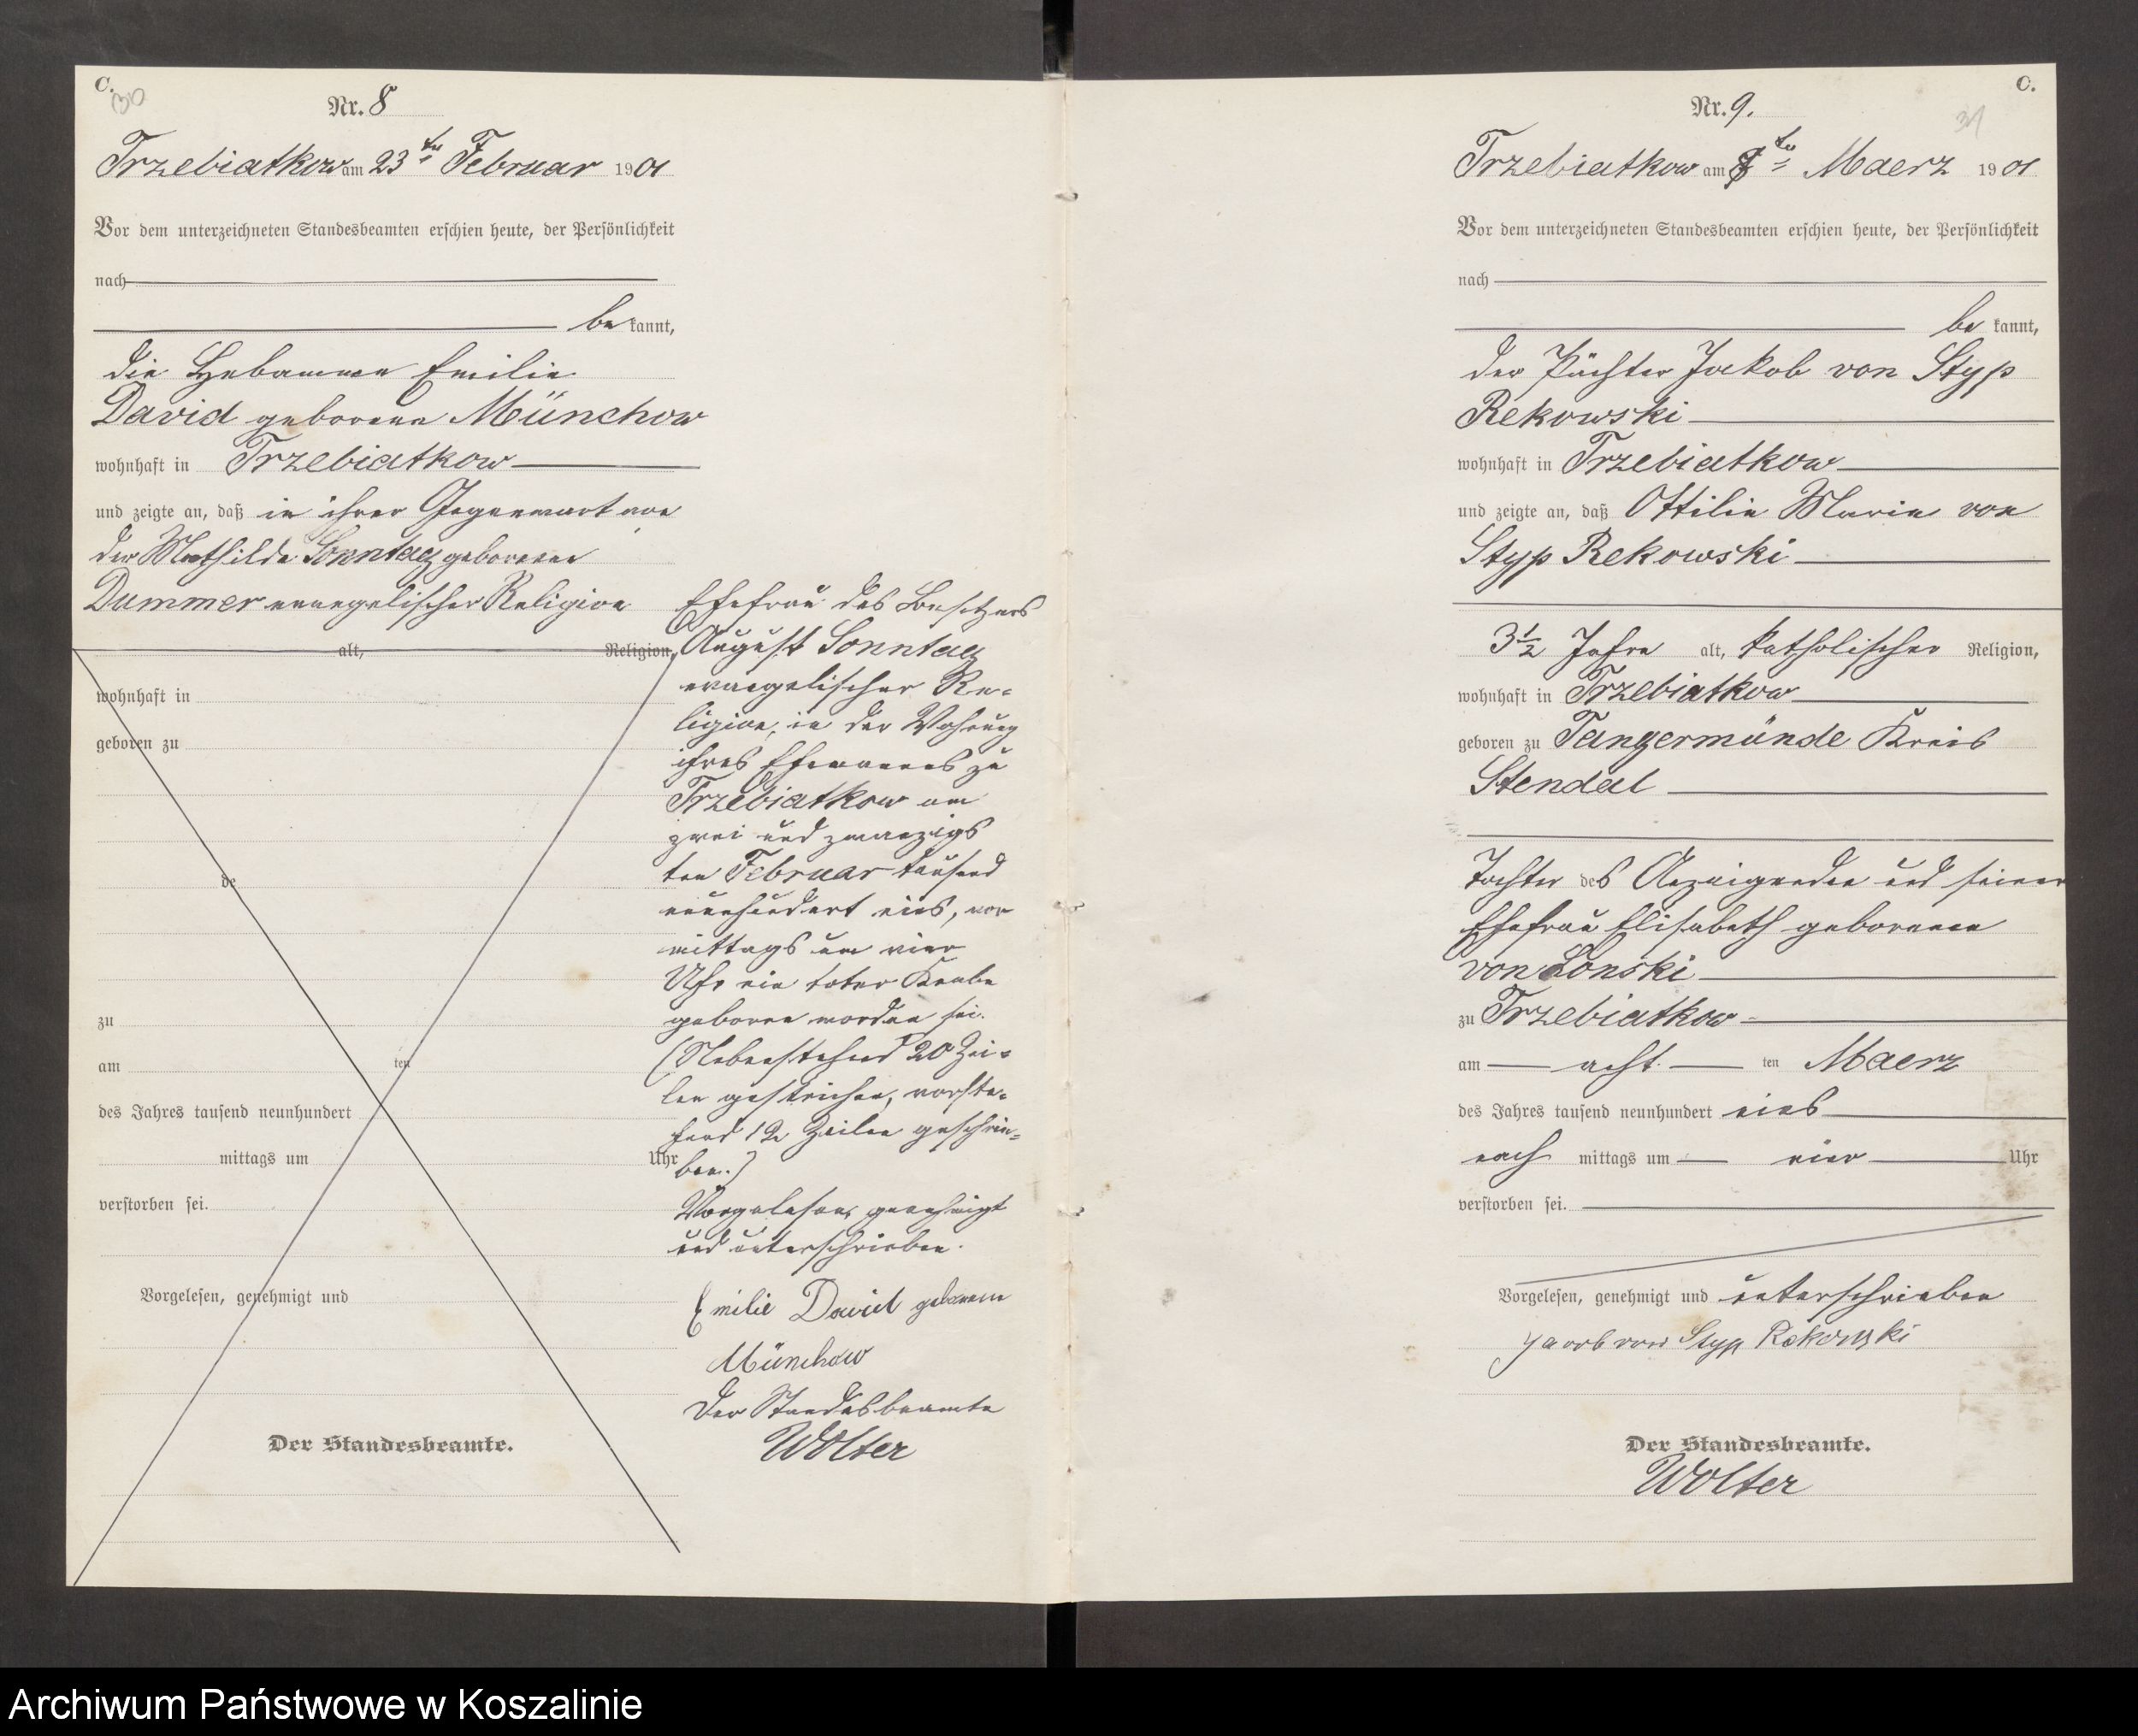 C.
30
Nr. 8
Trzebiatkow am 23ten Februar 1901
Vor dem unterzeichneten Standesbeamten erschien heute, der Persönlichkeit
nach
be kannt,
die Hebamme Emilie
David geborene Münchow
wohnhaft in Trzebiatkow
und zeigte an, daß in ihrer Gegenwart von
der Mathilde Sonntag geborenen
Dummer evangelischer Religion
alt, Religion,
wohnhaft in
geboren zu
de
zu
am ten
des Jahres tausend neunhundert
mittags um Uhr
verstorben sei.
Vorgelesen, genehmigt und
Der Standesbeamte.
Ehefrau des Besitzers
August Sonntag
evangelischer Re-
ligion, in der Wohnung
ihres Ehemannes zu
Trzebiatkow am
zwei und zwanzigs
ten Februar tausend
neunhundert eins, vor
mittags um vier
Uhr ein toter Knabe
geboren worden sei.
(Nebenstehend 20 Zei-
len gestrichen, vorste-
hend 12 Zeilen geschrie-
ben.)
Vorgelesen, genehmigt
und unterschrieben.
Emilie David geborene
Münchow
Der Standesbeamte
Wolter
C.
31
Nr. 9.
Trzebiatkow am ten Maerz 1901
Vor dem unterzeichneten Standesbeamten erschien heute, der Persönlichkeit
nach
be kannt,
der Pächter Jakob von Styp
Rekowski
wohnhaft in Trzebiatkow
und zeigte an, daß Ottilie Marie von
Styp Rekowski
3½ Jahre alt, katholischer Religion,
wohnhaft in Trzebiatkow
geboren zu Tangermünde Kreis
Stendal
Tochter des Anzeigenden und seiner
Ehefrau Elisabeth geborenen
von Lonski
zu Trzebiatkow
am acht ten Maerz
des Jahres tausend neunhundert eins
nach mittags um vier Uhr
verstorben sei.
Vorgelesen, genehmigt und unterschrieben
von Styp Rekowski
Der Standesbeamte.
Wolter
Archiwum Państwowe w Koszalinie